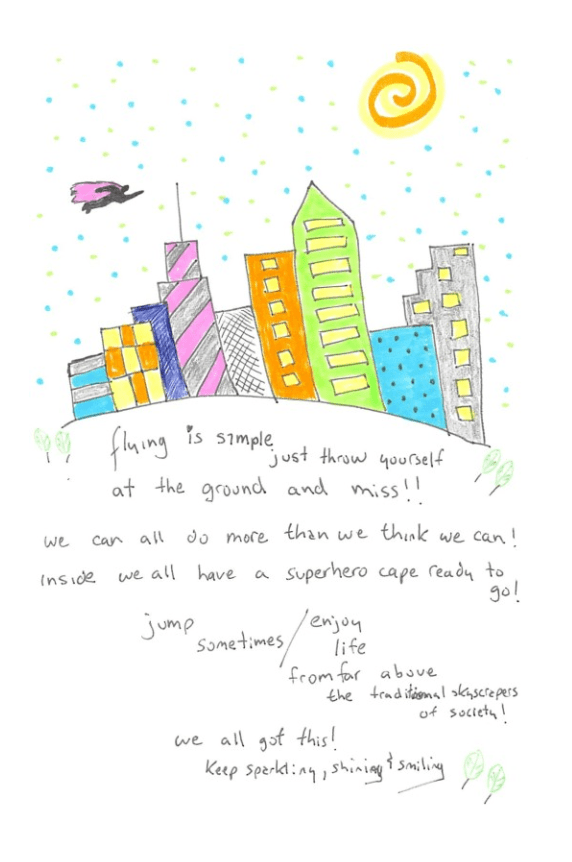 flying is simple
just throw yourself
at the ground and miss!!
we can all do more than we think we can!
inside we all have a superhero cape ready to
go!
jump
sometimes / enjoy
life
from far above
the traditional skyscrapers
of society!
we all got this!
keep sparkling, shining & smiling